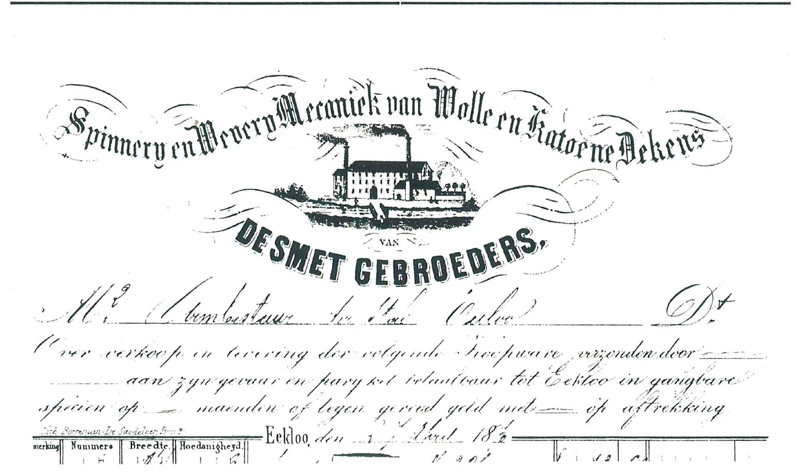 Spinnery en Wevery Mecaniek van Wolle en Katoene Dekens
VAN
DESMET GEBROEDERS,
Mr. Armbestuur der Stad Eecloo Dt
Over verkoop en levering der volgende Koopware verzonden door
aan zyn gevaar en parykel betaalbaar tot Eekloo in gangbare
specien op maenden of tegen gereed geld met op aftrekking
Eekloo, den 18
merking Nummers Breedte Hoedanigheyd